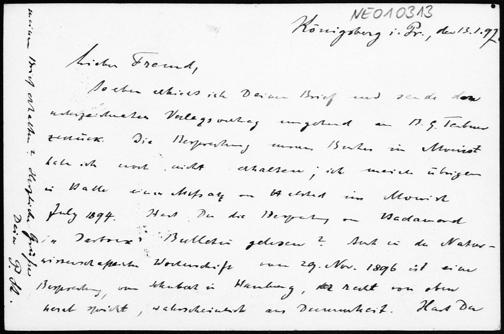 NE010313
Königsberg i. Pr., den 13.1.97.
Lieber Freund,
Soeben erhielt ich Deinen Brief und sende den
unterzeichneten Verlagsvertrag umgehend an B. G. Teubner
zurück. Die Besprechung meines Buches im Monist
habe ich noch nicht erhalten; ich meine übrigens
in Halle einen Aufsatz von Halsted im Monist
July 1894. Hast Du die Besprechung von Hadamard
in Darboux' Bulletin gelesen? Auch in der Natur-
wissenschaftlichen Wochenschrift vom 29. Nov. 1896 ist eine
Besprechung, von Schubert in Hamburg, der recht von oben
herab spricht, wahrscheinlich aus Dummheit. Hast Du
meinen Brief erhalten? Herzliche Grüsse
Dein P. St.